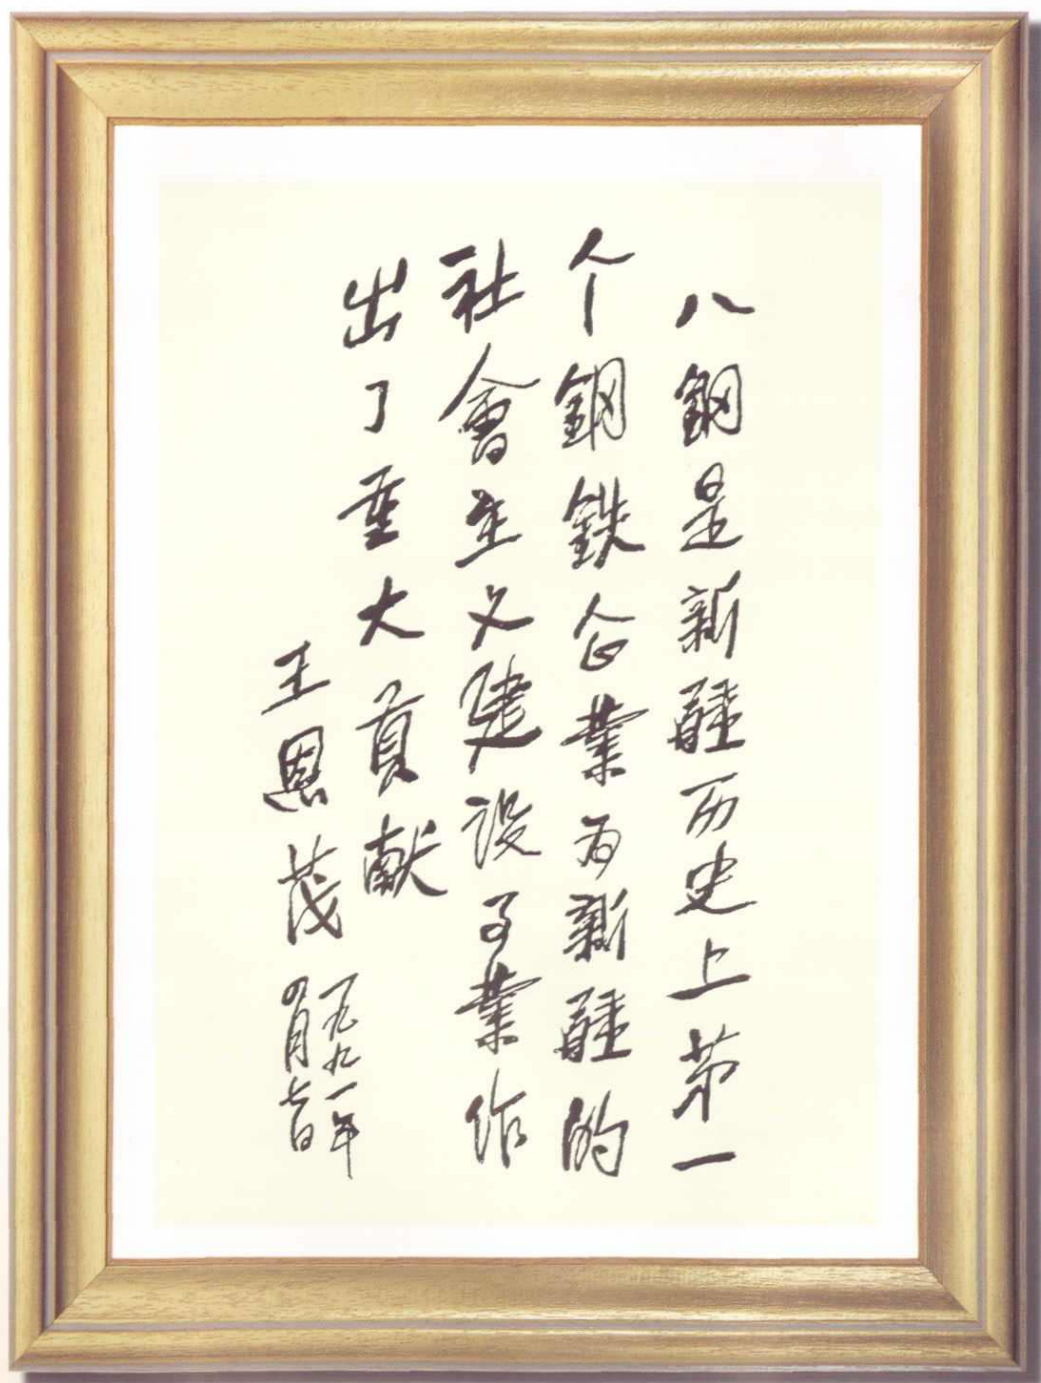 八鋼是新疆历史上第一
个鋼鉄企業为新疆的
社會主义建设事業作
出了重大貢献
王恩茂
一九九一年
四月七日